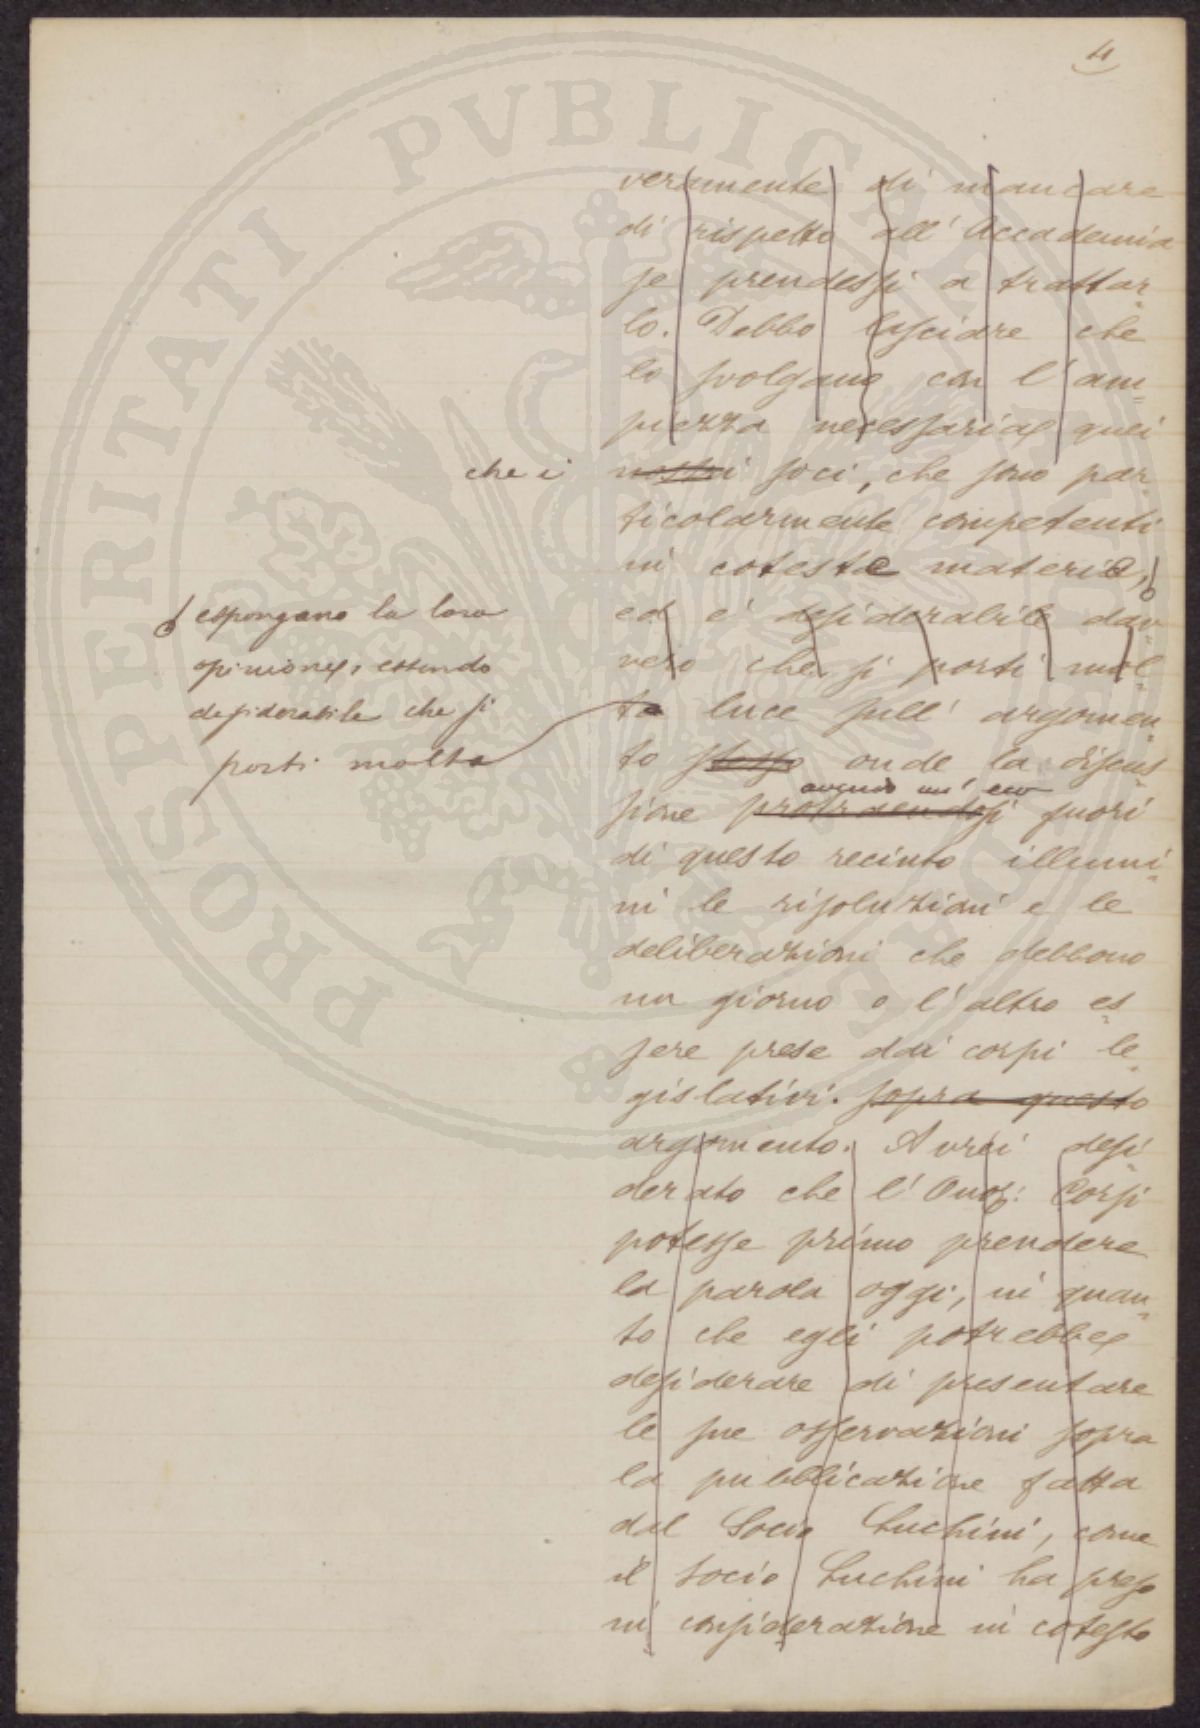 4
PROSPERITATI PVBLICAE AVGENDAE
veramente di mancare
di rispetto all' Accademia
se prendessi a trattar=
lo. Debbo lasciare che
lo svolgano con l' am=
piezza necessaria quei
che i
nostri soci, che sono par=
ticolarmente competenti
in coteste materie,
ed è desiderabile dav=
vero che si porti mol=
to luce sull' argomen=
to stesso onde la discus=
avendo un' eco
sione protraendosi fuori
di questo recinto illumi=
ni le risoluzioni e le
deliberazioni che debbono
un giorno o l' altro es=
sere prese dai corpi le=
gislativi. sopra questo
argomento. Avrei desi=
derato che l' Onor: Corsi
potesse primo prendere
la parola oggi, in quan=
to che egli potrebbe
desiderare di presentare
le sue osservazioni sopra
la pubblicazione fatta
dal Socio Luchini, come
il socio Luchini ha preso
in considerazione in cotesto
espongano la loro
opinione, essendo
desiderabile che si
porti molta